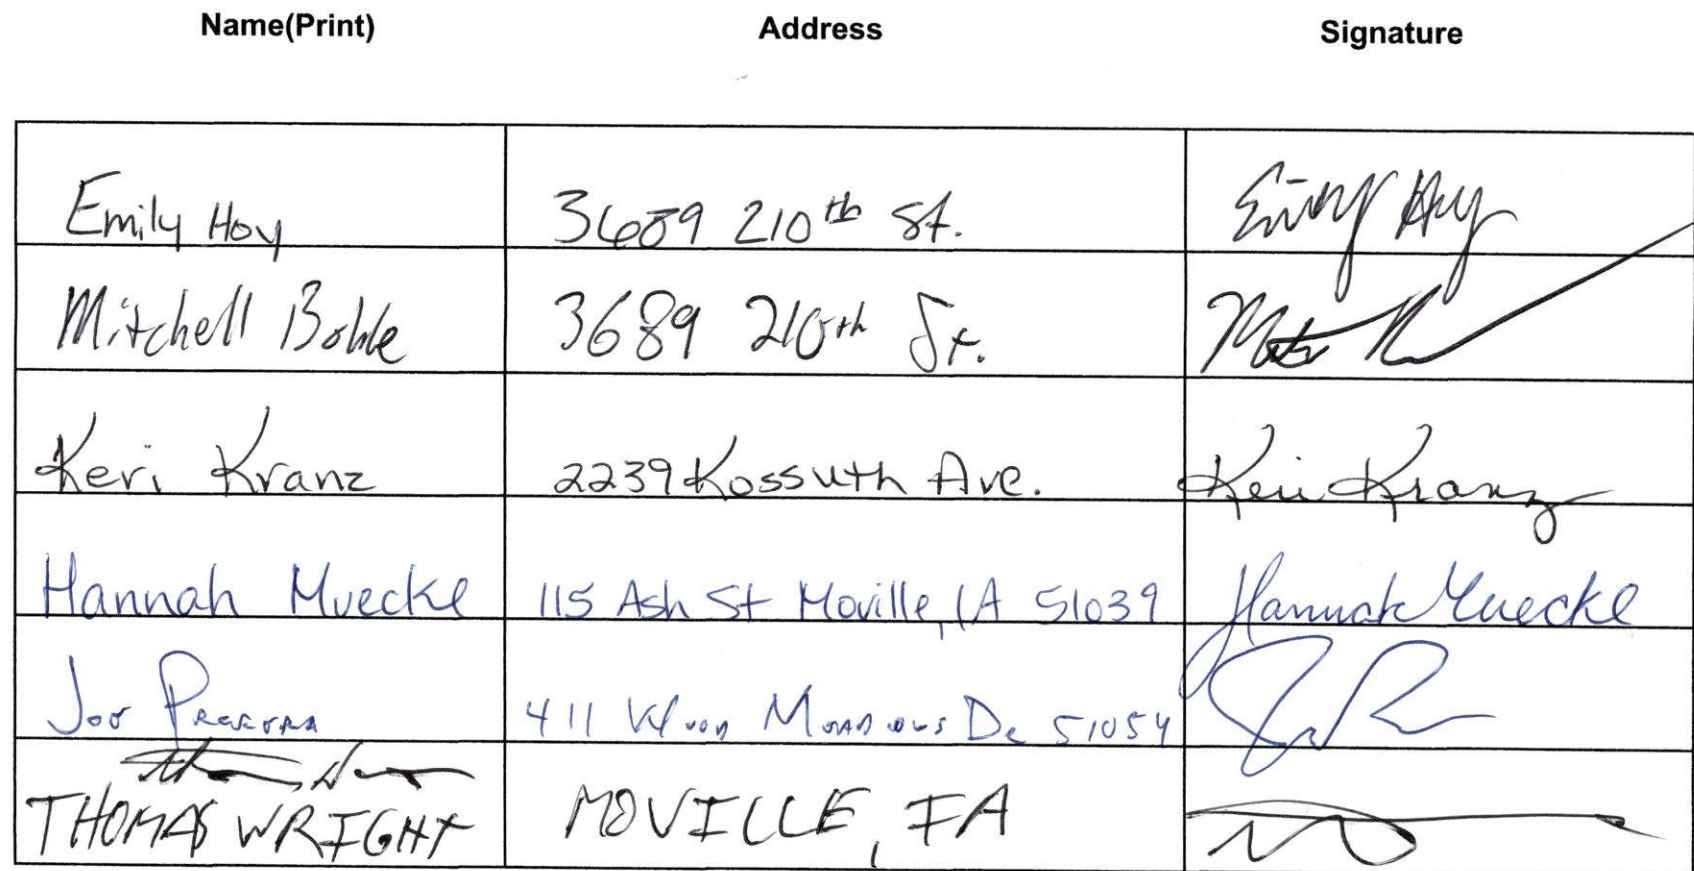 Name(Print) Address Signature
Emily Hoy 3689 210th St. Emily Hoy
Mitchell Bohle 3689 210th St.
Keri Kranz 2239 Kossuth Ave. Keri Kranz
Hannah Muecke 115 Ash St Moville, IA 51039 Hannah Muecke
Joe 411 Wood Meadows Dr 51054
THOMAS WRIGHT MOVILLE, IA